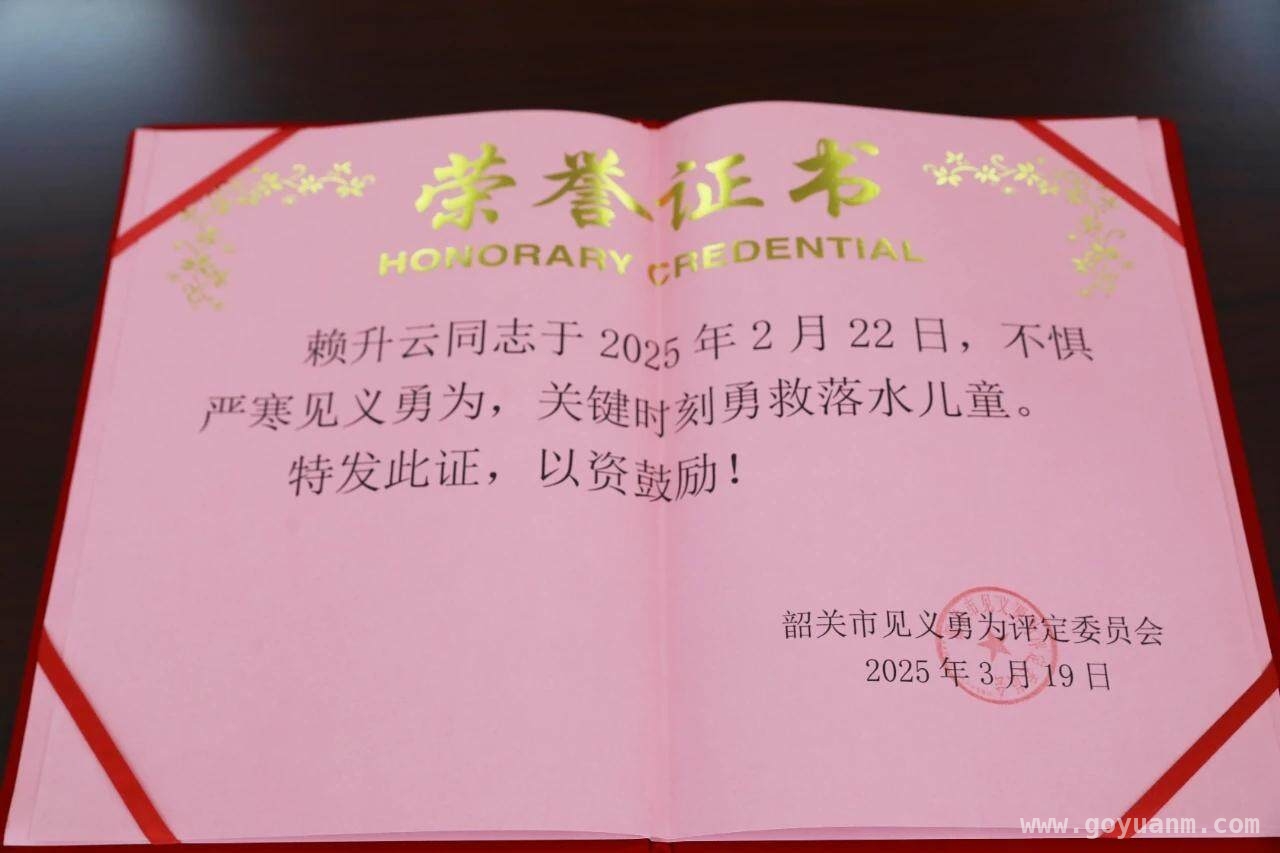 荣誉证书
HONORARY CREDENTIAL
赖升云同志于 2025 年 2 月 22 日，不惧
严寒见义勇为，关键时刻勇救落水儿童。
特发此证，以资鼓励！
韶关市见义勇为评定委员会
2025 年 3 月 19 日
www.goyuanm.com